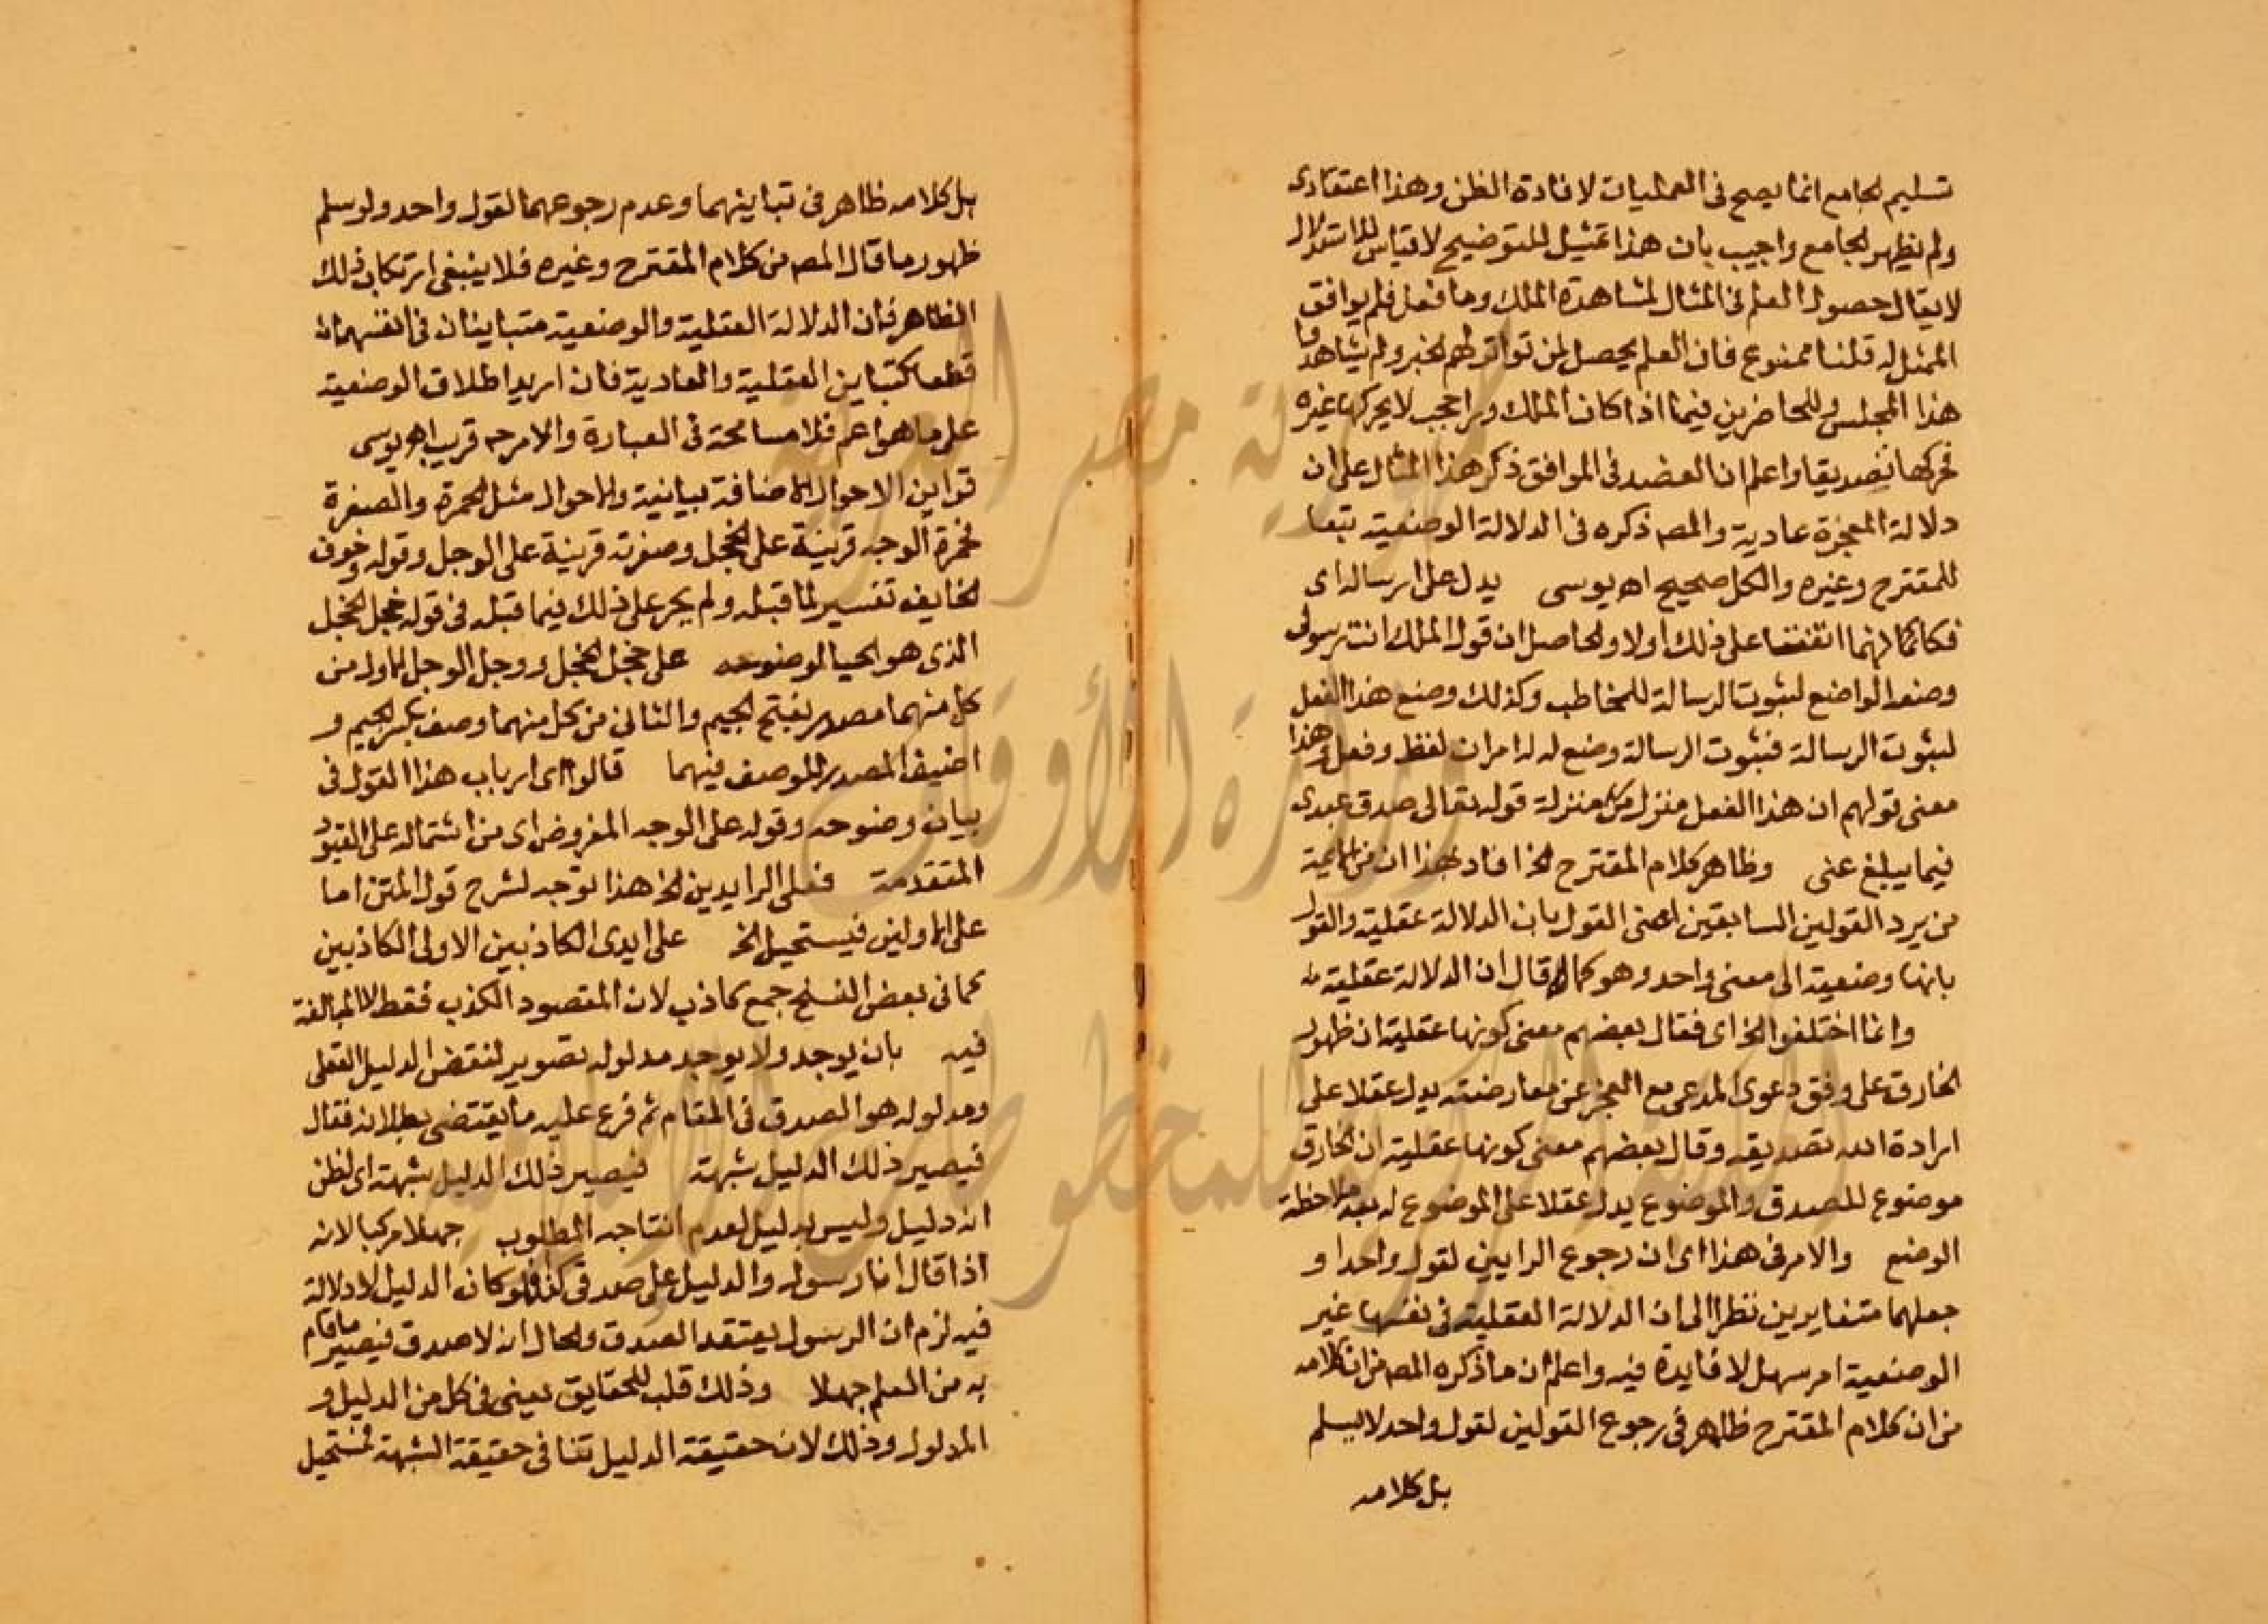 تسليم الجامع انما يصح في العمليات لافادة الظن وهذا اعتقادى
ولم يظهر الجامع واجيب بان هذا تمثيل للتوضيح لا قياس للاستدلال
لا يقال حصول العلم في المثال لمشاهدة الملك وما فعل فلم يوافق
الممثل له قلنا ممنوع فان العلم يحصل لمن تواتر لهم الخبر ولم يشاهدوا
هذا المجلس وللحاضرين فيما اذا كان الملك ورا حجب لا يحركها غيره
فحركها تصديقا واعلم ان العضد في المواقف ذكر هذا المثال على ان
دلالة المعجزة عادية والمصـ ذكره في الدلالة الوضعية تبعا
للمقترح وغيره والكل صحيح اهـ يوسى يدل على ارساله اى
فكانما انهما اتفقتا على ذلك اولا والحاصل ان قول الملك انت رسولى
وضعه الواضع لثبوت الرسالة للمخاطب وكذلك وضع هذا الفعل
لثبوت الرسالة فثبوت الرسالة وضع له امران لفظ وفعل وهذا
معنى قولهم ان هذا الفعل منزل من منزلة قوله تعالى صدق عبدى
فيما يبلغ عنى وظاهر كلام المقترح الخ افاد بهذا ان من الايمة
من يرد القولين السابقين اعنى القول بان الدلالة عقلية والقول
بانها وضعية الى معنى واحد وهو كما قال ان الدلالة عقلية
وانما اختلفوا الخ اى فقال بعضهم معنى كونها عقلية ان ظهور
الخارق على وفق دعوى المدعى مع العجز عن معارضته يدل عقلا على
ارادة الله تصديقه وقال بعضهم معنى كونها عقلية ان الخارق
موضوع للصدق والموضوع يدل عقلا على الموضوع له بعد ملاحظة
الوضع والامر في هذا اى ان رجوع الرايين لقول واحد او
جعلهما متغايرين نظرا الى ان الدلالة العقلية في نفسها غير
الوضعية امر سهل لا فايدة فيه واعلم ان ما ذكره المصـ من ان كلامه
من ان كلام المقترح ظاهر في رجوع القولين لقول واحد لا يسلم
بل كلامه
بل كلامه ظاهر في تباينهما وعدم رجوعهما لقول واحد ولو سلم
ظهور ما قال المصـ من كلام المقترح وغيره فلا ينبغى ارتكاب ذلك
الظاهر فان الدلالة العقلية والوضعية متباينان في انفسهما
قطعا كتباين العقلية والعادية فان اريد اطلاق الوضعية
على ما هو اعم فلا مسامحة في العبارة والامر حـ قريب اهـ يوسى
قراين الاحوال الاضافة بيانية والاحوال مثل الحمرة والصفرة
فحمرة الوجه قرينة على الخجل وصفرته قرينة على الوجل وقوله وخوف
الخايف تفسير لما قبله ولم يجر على ذلك فيما قبله في قوله خجل الخجل
الذى هو الحيا لوضوحه على خجل الخجل ووجل الوجل الاول من
كل منهما مصدر بفتح الجيم والثانى من كل منهما وصف بكسر الجيم و
اضيف المصدر للوصف فيهما قالوا اى ارباب هذا القول في
بيان وضوحه وقوله على الوجه المفروض اى من اشتماله على القيود
المتقدمة فعلى الرايين الخ هذا توجه لشرح قول المتن اما
على الاولين فيستحيل الخ على ايدى الكاذبين الاولى الكاذبين
كما في بعض النسخ جمع كاذب لان المقصود الكذب فقط لا المبالغة
فيه بان يوجد ولا يوجد مدلوله تصوير لنقض الدليل العقلى
ومدلوله هو الصدق في المقام ثم فرع عليه ما يقتضى بطلانه فقال
فيصير ذلك الدليل شبهة فيصير ذلك الدليل شبهة اى لظن
انه دليل وليس بدليل لعدم انتاجه المطلوب جهلا مركبا لانه
اذا قال انا رسول والدليل على صدقى كذا فلو كان الدليل لا دلالة
فيه لزم ان الرسول يعتقد الصدق والحال انه لا صدق فيصير ما قام
به من العلم جهلا وذلك قلب للحقايق يعنى في كل من الدليل و
المدلول وذلك لان حقيقة الدليل تنافى حقيقة الشبهة فيستحيل